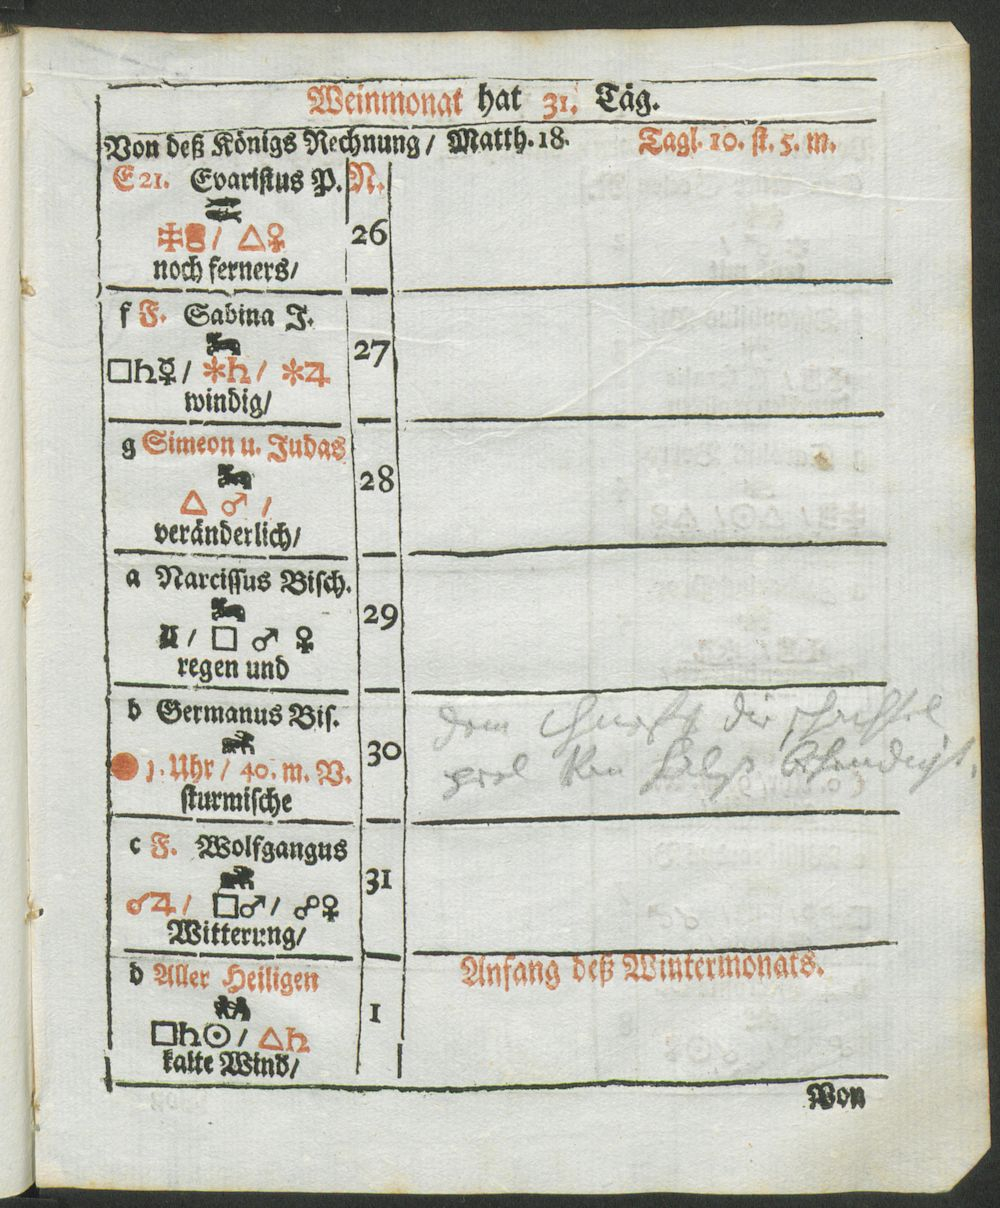 Weinmonat hat 31. Täg.
Von deß Königs Rechnung / Matth. 18. Tagl. 10. st. 5. m.
E 21. Evaristus P. N.
/ △♀
26
noch ferners/
f F. Sabina J.
□♄☿/ ✱♄/ ✱♃
27
windig/
g Simeon u. Judas
△ ♂ /
28
veränderlich/
a Narcissus Bisch.
/ □ ♂ ♀
29
regen und
b Germanus Bis.
1. Uhr / 40. m. V.
30
dem die
sturmische
c F. Wolfgangus
☌♃/ □♂/ ☍♀
31
Witterung/
d Aller Heiligen
Anfang deß Wintermonats.
□♄☉/ △♄
1
kalte Wind/
Von